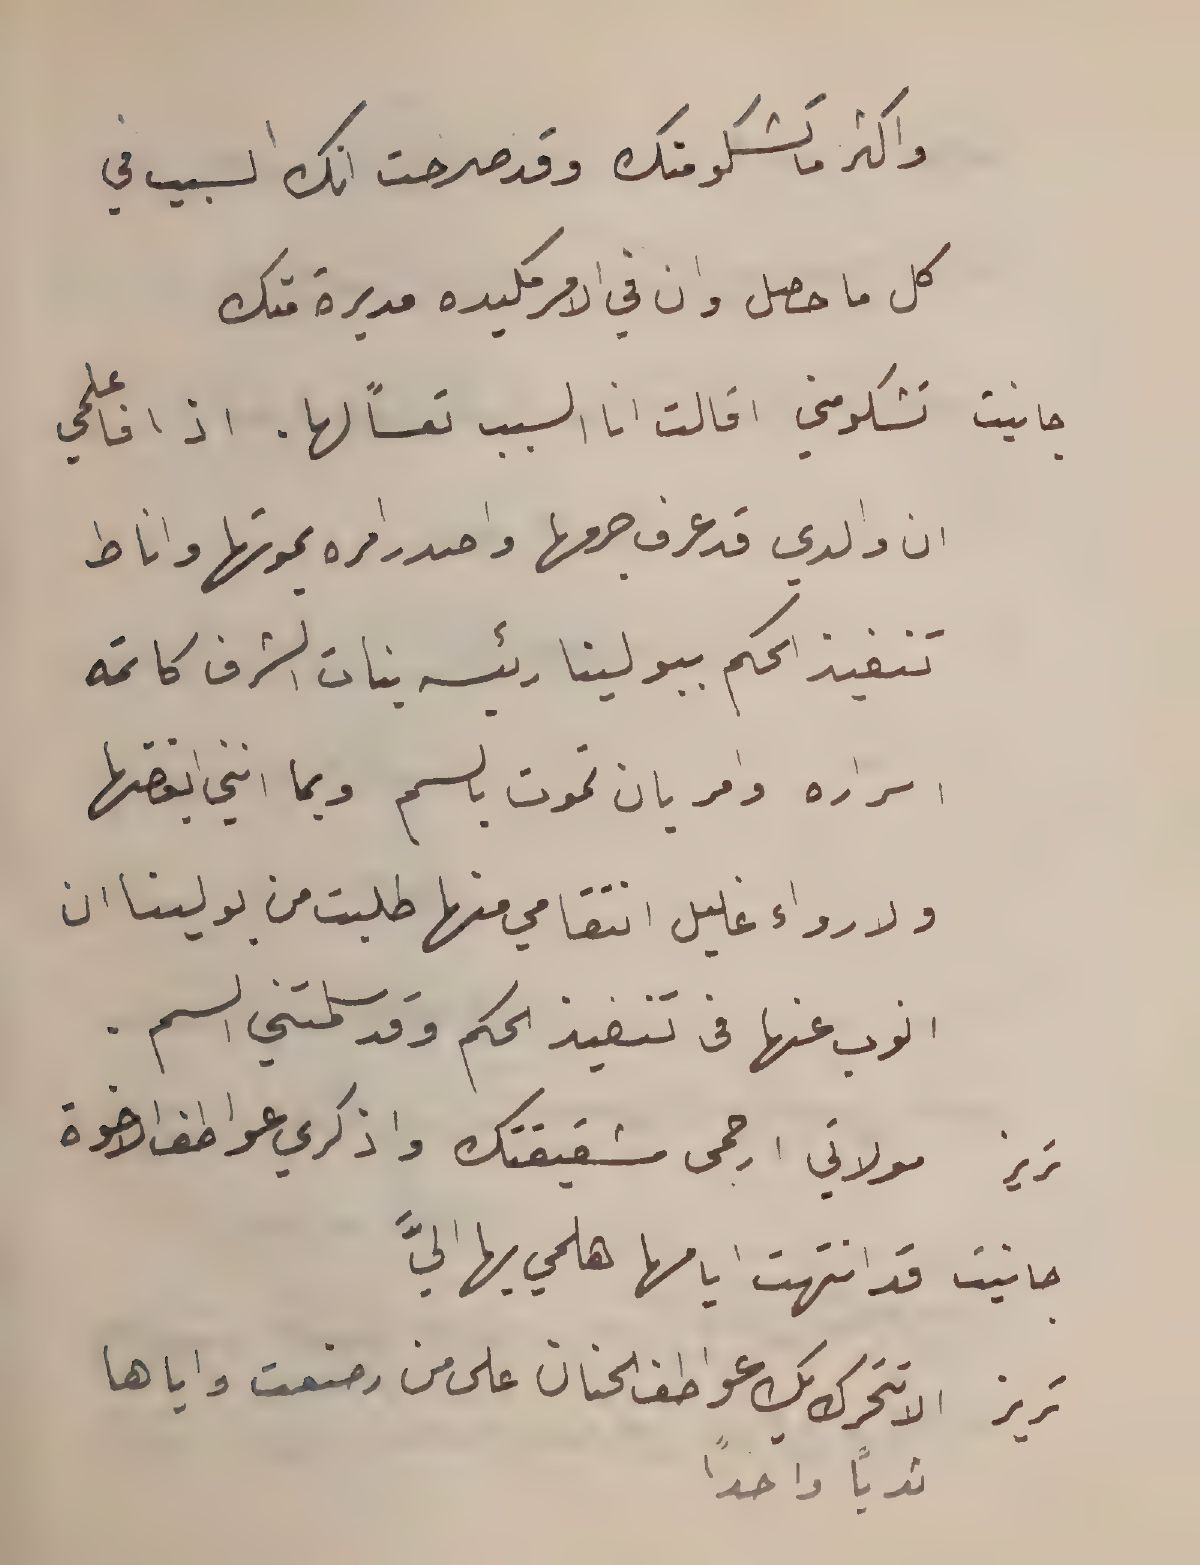 واكثر ما تشكو منك وقد صرخت انك السبب في
كل ما حصل وان في الامر مكيده مديرة منك
جانيت تشكو مني اقالت انا السبب تعساً لها. اذا فاعلمي
ان والدي قد عرف جرمها واصدر امره بموتها واناط
تنفيذ الحكم ببولينا رئيسه بنات الشرف كاتمه
اسراره وامر بان تموت بالسم وبما انني ابغضها
ولارواء غليل انتقامي منها طلبت من بولينا ان
انوب عنها فى تنفيذ الحكم وقد سلمتني السم.
تريز مولاتي ارحمى شقيقتك واذكري عواطف الاخوة
جانيت قد انتهت ايامها هلمي بها اليَّ
تريز الا تتحرك بك عواطف الحنان على من رضعت واياها
ثدياً واحداً